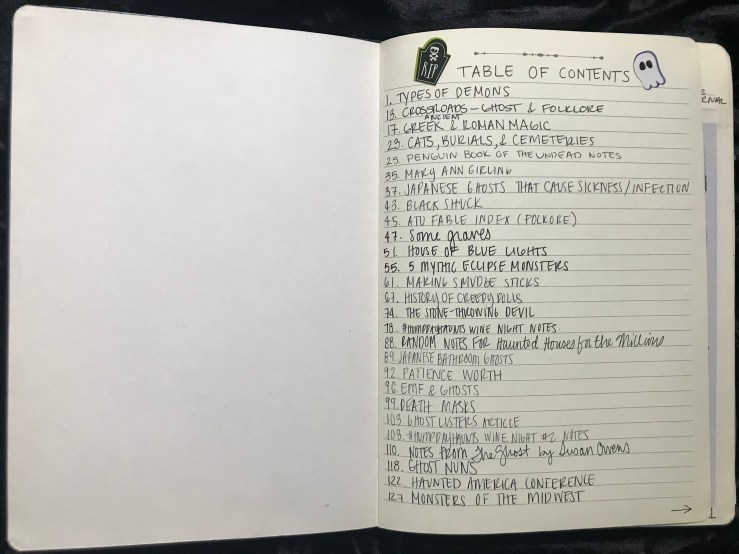 RIP
TABLE OF CONTENTS
1. TYPES OF DEMONS
13. CROSSROADS - GHOST & FOLKLORE
ANCIENT
17. GREEK & ROMAN MAGIC
23. CATS, BURIALS, & CEMETERIES
25. PENGUIN BOOK OF THE UNDEAD NOTES
35. MARY ANN GIRLING
37. JAPANESE GHOSTS THAT CAUSE SICKNESS/INFECTION
43. BLACK SHUCK
45. ATU FABLE INDEX (FOLKORE)
47. Some graves
51. HOUSE OF BLUE LIGHTS
55. 5 MYTHIC ECLIPSE MONSTERS
61. MAKING SMUDGE STICKS
67. HISTORY OF CREEPY DOLLS
74. THE STONE-THROWING DEVIL
78. #HUMPDAYHAUNTS WINE NIGHT NOTES.
88. RANDOM NOTES FOR Haunted Houses for the Millions
89. JAPANESE BATHROOM GHOSTS
92. PATIENCE WORTH
96. EMF & GHOSTS
99. DEATH MASKS
103 GHOSTLISTERS ARTICLE
108. #HUMPDAYHAUNTS WINE NIGHT #2 NOTES
110. NOTES FROM The Ghost by Susan Owens
118. GHOST NUNS
122. HAUNTED AMERICA CONFERENCE
127. MONSTERS OF THE MIDWEST
→
RNAL